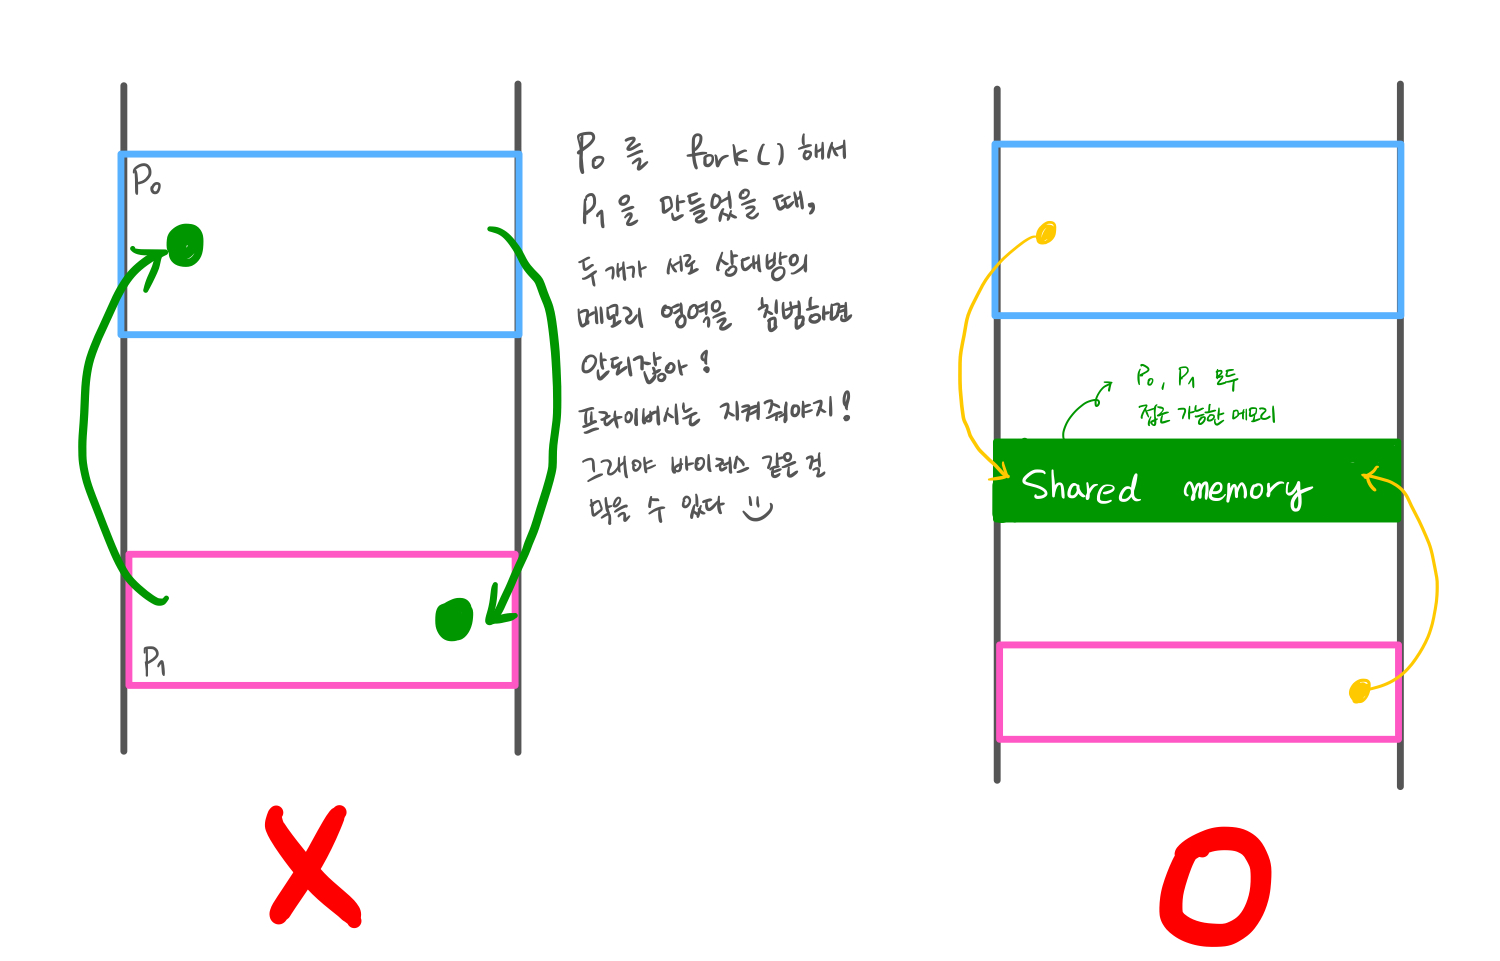 P₀
P₀ 를 fork() 해서
P₁ 을 만들었을 때,
두 개가 서로 상대방의
메모리 영역을 침범하면
안되잖아!
프라이버시는 지켜줘야지!
그래야 바이러스 같은 걸
막을 수 있다
P₁
P₀, P₁ 모두
접근 가능한 메모리
Shared memory
X
O